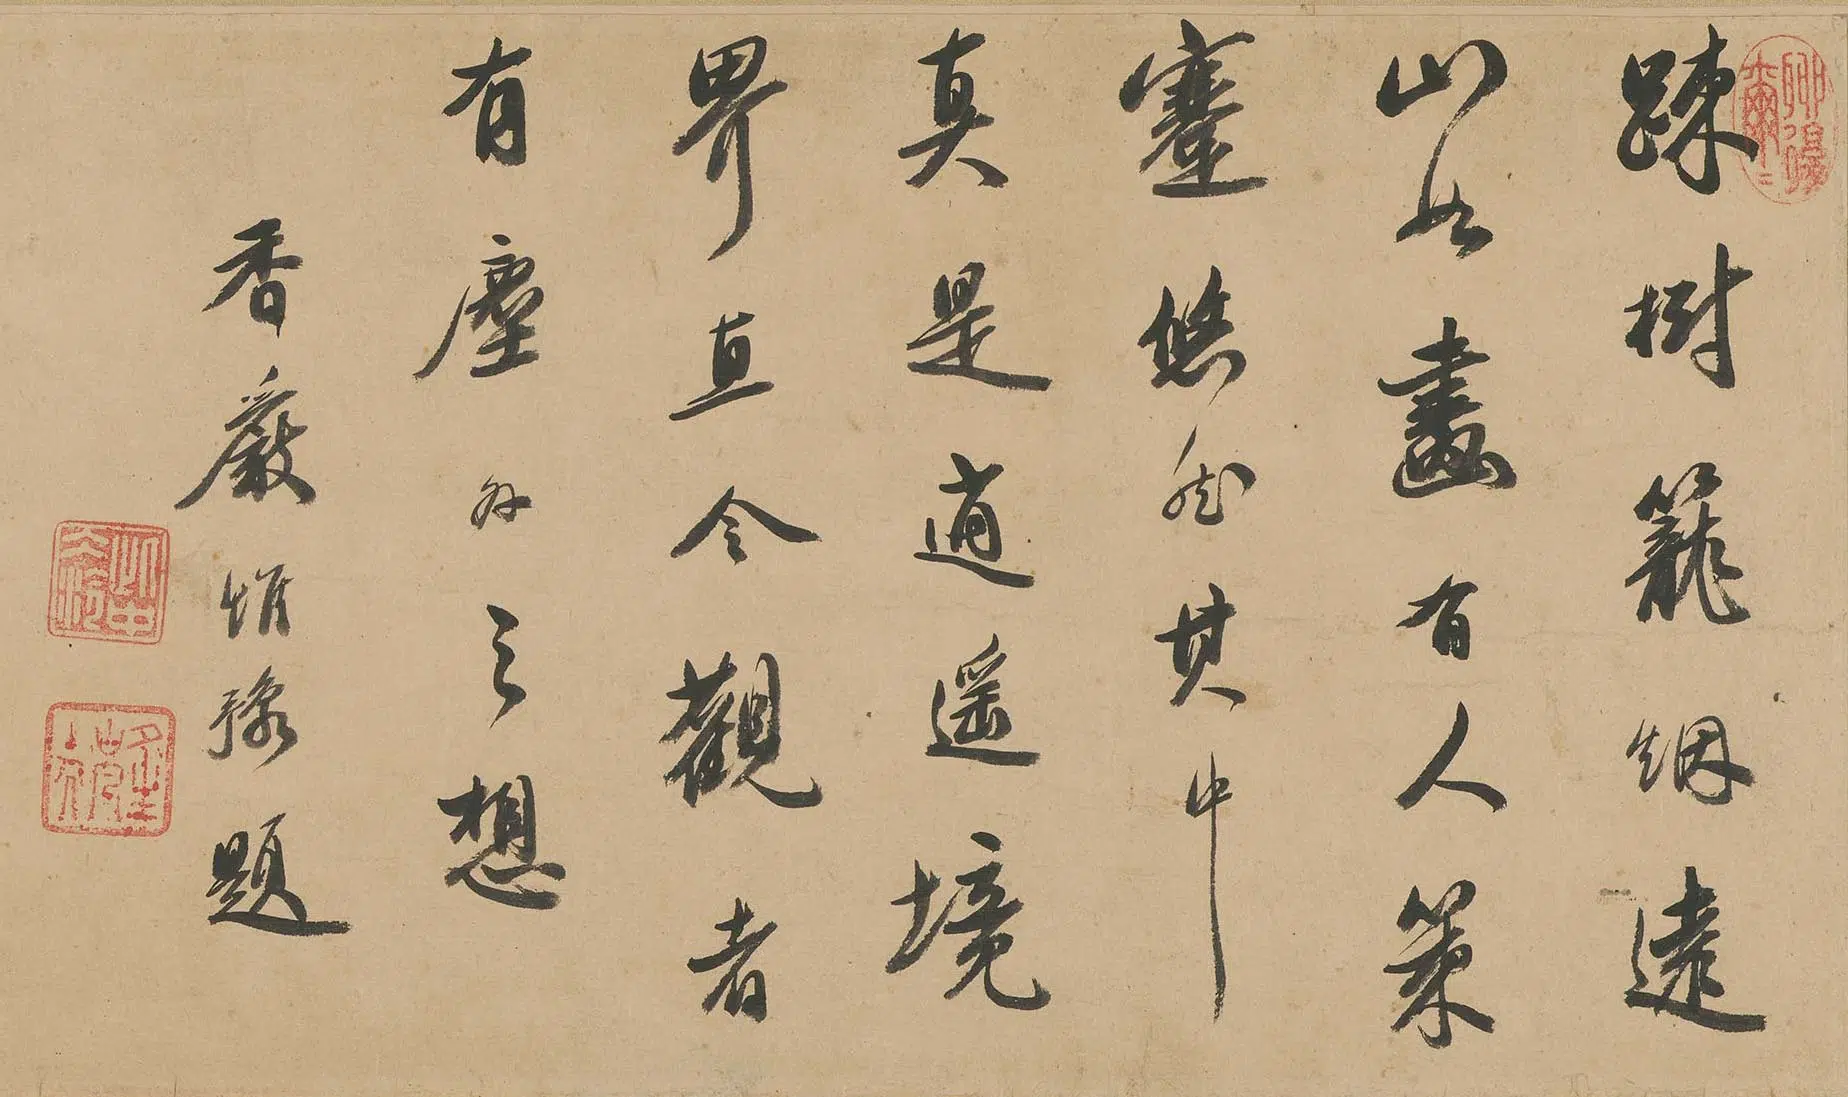 踈樹籠烟遠
山如畫有人策
蹇悠然其中
真是逍遥境
界直令觀者
有塵外之想
香嚴惟豫題